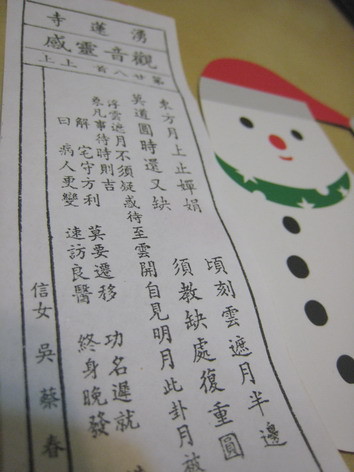 湧蓮寺
觀音靈感
第廿八首 上上
東方月上止嬋娟 頃刻雲遮月半邊
莫道圓時還又缺 須教缺處復重圓
浮雲遮月不須疑惑待至雲開自見明月此卦月被
象凡事待時則吉
解曰
宅守方利 莫要遷移 功名遲就
病人更變 速訪良醫 終身晚發
信女 吳蔡春